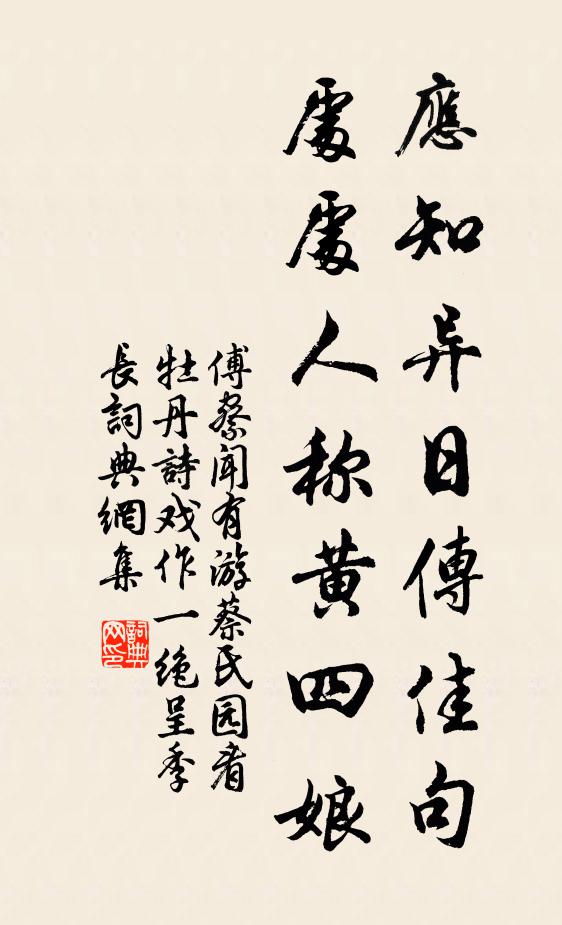 應知异日傳佳句
處處人称黄四娘
傅察聞有游蔡氏园看
牡丹詩戏作一绝呈季
長詞典網集
詞典网印